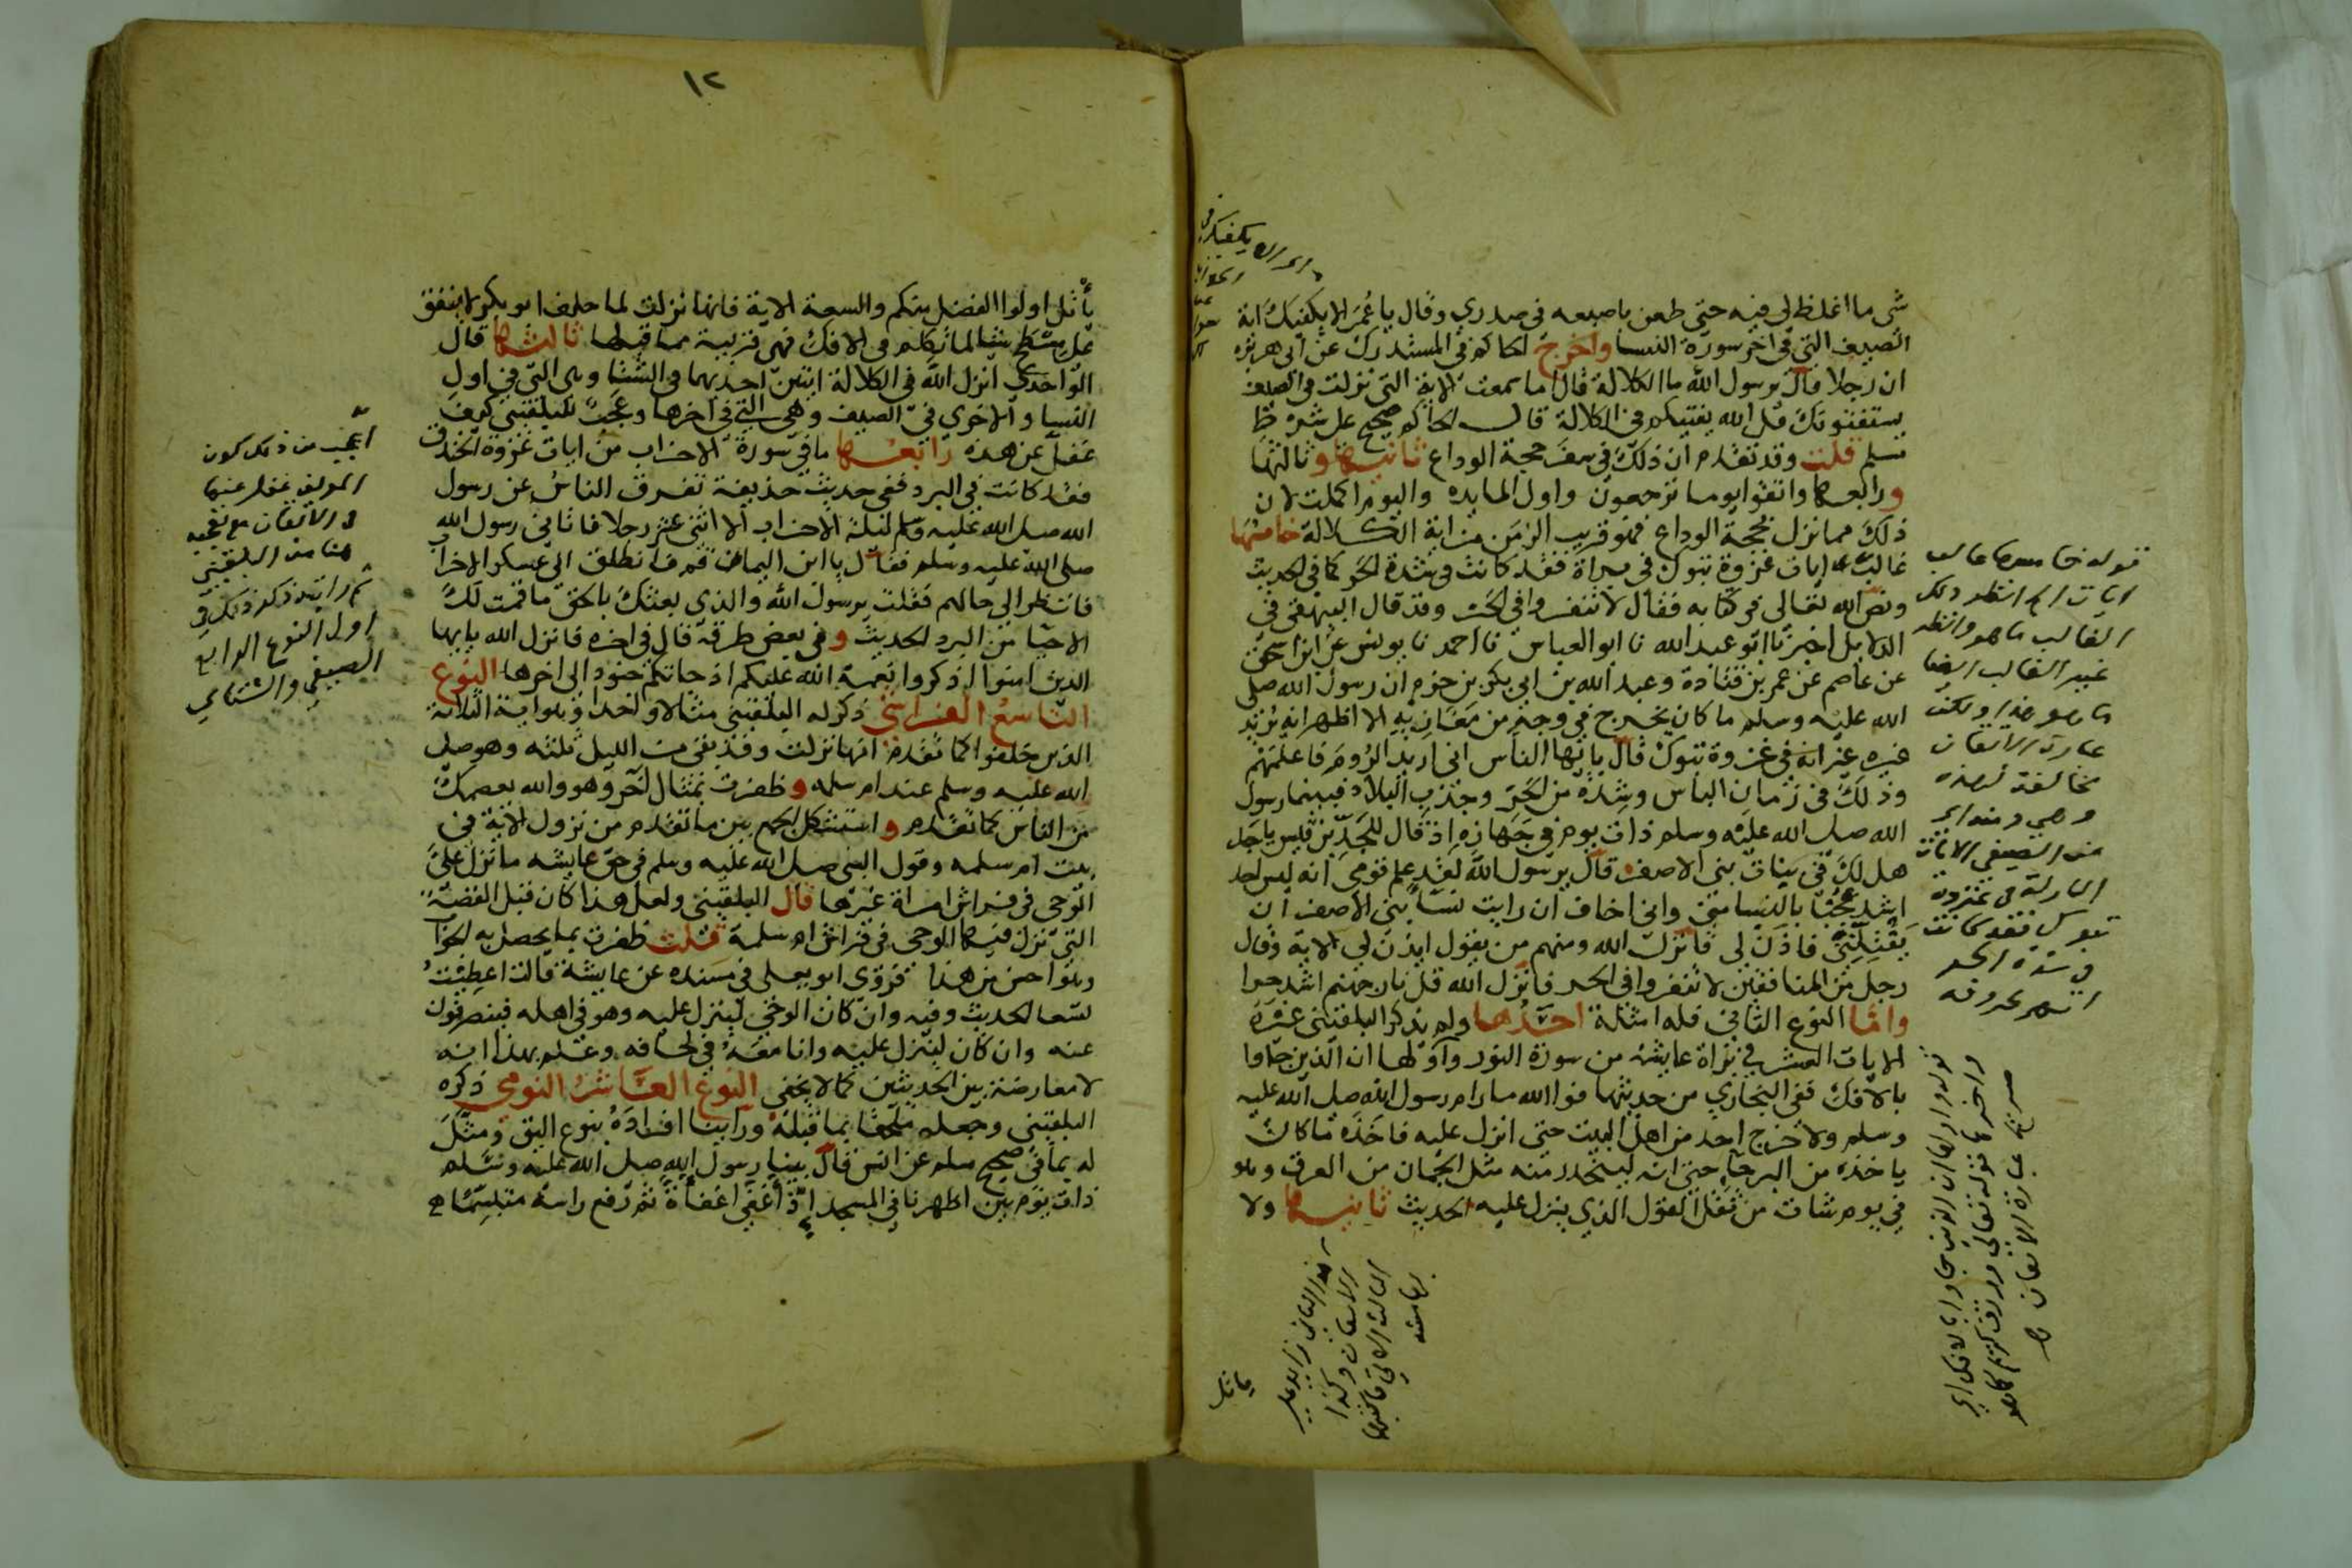 شى ما اغلظ لى فيه حتى طعن باصبعه فى صدري وقال يا عُمَر الا يكفيك اية
الصيف التي في اخر سورة النسا واخرج الحاكم في المستدرك عن ابى هريره
ان رجلا قال يرسول الله ما الكلالة قال اما سمعت الاية التى نزلت في الصيف
يستفتونك قل الله يفتيكم في الكلالة قال الحاكم صحيح على شرط
مسلم قلت وقد تقدم ان ذلك في سفر حجة الوداع ثانيها وثالثها
ورابعها واتقوا يوما ترجعون واول المايده واليوم اكملت لان
ذلك مما نزل بحجة الوداع فهو قريب الزمن من اية الكلالة خامسها
غالب ايات غزوة تبوك في براة فقد كانت في شدة الحر كما في الحديث
ونص الله تعالى في كتابه فقال لا تنفروا في الحر وقد قال البيهقي في
الدلايل اخبرنا ابو عبد الله نا ابو العباس نا احمد نا يونس عن ابن اسحق
عن عاصم عن عمر بن قتادة وعبد الله بن ابي بكر بن حزم ان رسول الله صلى
الله عليه وسلم ما كان يخرج في وجه من مغازيه الا اظهر انه يريد
غيره غير انه في غزوة تبوك قال يا ايها الناس اني اريد الرُوم فاعلمهم
وذلك في زمان الباس وشدة من الحر وجدب البلاد فبينما رسول
الله صلى الله عليه وسلم ذات يوم في جهازه اذ قال للجد بن قيس يا جد
هل لك في بنات بني الاصفر قال يرسول الله لقد علم قومي انه ليس احد
اشد عُجبًا بالنسا مني واني اخاف ان رايت نسا بني الاصفر ان
يفتننّي فاذن لى فانزل الله ومنهم من يقول ايذن لي الاية وقال
رجل من المنافقين لا تنفروا في الحر فانزل الله قل نار جهنم اشد حرا
وامّا النوع الثاني فله امثلة احدُها ولم يذكر البلقيني غيره
الايات العشر في براة عايشة من سورة النور واولها ان الذين جاوا
بالافك ففي البخاري من حديثها فوالله ما رام رسول الله صلى الله عليه
وسلم ولا خرج احد من اهل البيت حتى انزل عليه فاخذه ما كان
ياخذه من البرحا حتى انه ليتحدر منه مثل الجُمان من العرق وهو
في يوم شات من ثقل القول الذي ينزل عليه الحديث ثانيها ولا
قوله خامسها غالب
ايات الخ انظر ذلك
الغالب ما هو وانظر
غير الغالب ايضا
ما هو هذا ولكن
عبارة الاتقان
مخالفة لهذه
وهي ومنه اي
من الصيفي الايات
النازلة في غزوة
تبوك فقد كانت
في شدة الحر
انتهى بحروفه
قوله واولها ان الذين جاوا بالافك اي
واخرها قوله تعالى ورزق كريم كما هو
صريح عبارة الاتقان
هذا الثاني زايد على
الاتقان وكذا
الثالث الاتي
بهامشه
ياتل
١٢
يأتل اولوا الفضل منكم والسعة الاية فانها نزلت لما حلف ابو بكر لا ينفق
على مسطح شيا لما تكلم في الافك فهى قريبة مما قبلها ثالثها قال
الواحدي انزل الله في الكلالة ايتين احديهما في الشتا وهى التي في اول
النسا والاخرى في الصيف وهى التي في اخرها وعجبت للبلقيني كيف
غفل عن هذه رابعُها ما في سورة الاحزاب من ايات غزوة الخندق
فقد كانت في البرد ففي حديث حذيفة تفرق الناسُ عن رسول
الله صلى الله عليه وسلم ليلة الاحزاب الا اثنى عشر رجلا فاتاني رسول الله
صلى الله عليه وسلم فقال يا ابن اليمان قم فانطلق الى عسكر الاحزاب
فانظر الى حالهم فقلت يرسول الله والذي بعثك بالحق ما قمت لك
الا حيّا من البرد الحديث وفي بعض طرقه قال في اخره فانزل الله يا ايها
الذين امنوا اذكروا نعمة الله عليكم اذ جاتكم جنود الى اخرها النوع
التاسعُ الفراشي ذكر له البلقيني مثالا واحدا وهو اية الثلاثة
الذين خلفوا كما تقدم انها نزلت وقد بقى من الليل ثلثه وهو صلى
الله عليه وسلم عند ام سلمه وظفرت بمثال اخر وهو والله يعصمك
من الناس كما تقدم واستشكل الجمع بين ما تقدم من نزول الاية في
بيت ام سلمه وقول النبى صلى الله عليه وسلم في حق عايشه ما نزل عليَّ
الوحى في فراش امراة غيرها قال البلقيني ولعل هذا كان قبل القصّة
التي نزل فيها الوحى في فراش ام سلمة قلت ظفرت بما يحصل به الجواب
وهو احسن من هذا فروى ابو يعلى في مسنده عن عايشة قالت اعطيتُ
تسعا الحديث وفيه وان كان الوحى لينزل عليه وهو في اهله فينصرفون
عنه وان كان لينزل عليه وانا معهُ في لحافه وعلم بهذا انه
لا معارضة بين الحديثين كما لا يخفى النوع العَاشرُ النومى ذكره
البلقيني وجعله ملحقا بما قبلهُ وراينا افرادهُ بنوع اليق ومثّل
له بما في صحيح مسلم عن انس قال بينا رسول الله صلى الله عليه وسلم
ذات يوم بين اظهرنا في المسجد اذ أغفى اغفاة ثم رفع راسهُ متبسّمًا
أعجب من ذلك كون
المولف غفل عنها
في الاتقان مع تعجبه
هنا من البلقيني
ثم رايته ذكر ذلك في
اول النوع الرابع
الصيفي والشتاي